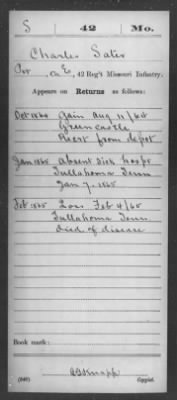 S 42 Mo.
Charles Sater
Pvt, Co. E, 42 Reg't Missouri Infantry.
Appears on Returns as follows:
Oct 1864 Gain Aug 11/64
Greencastle
Recrt from depot
Jan 1865 Absent Sick hospt
Tullahoma Tenn
Jan 7. 1865
Feb 1865 Loss Feb 4/65
Tullahoma Tenn
Died of disease
Book mark:
Knapp
(546) Copyist.